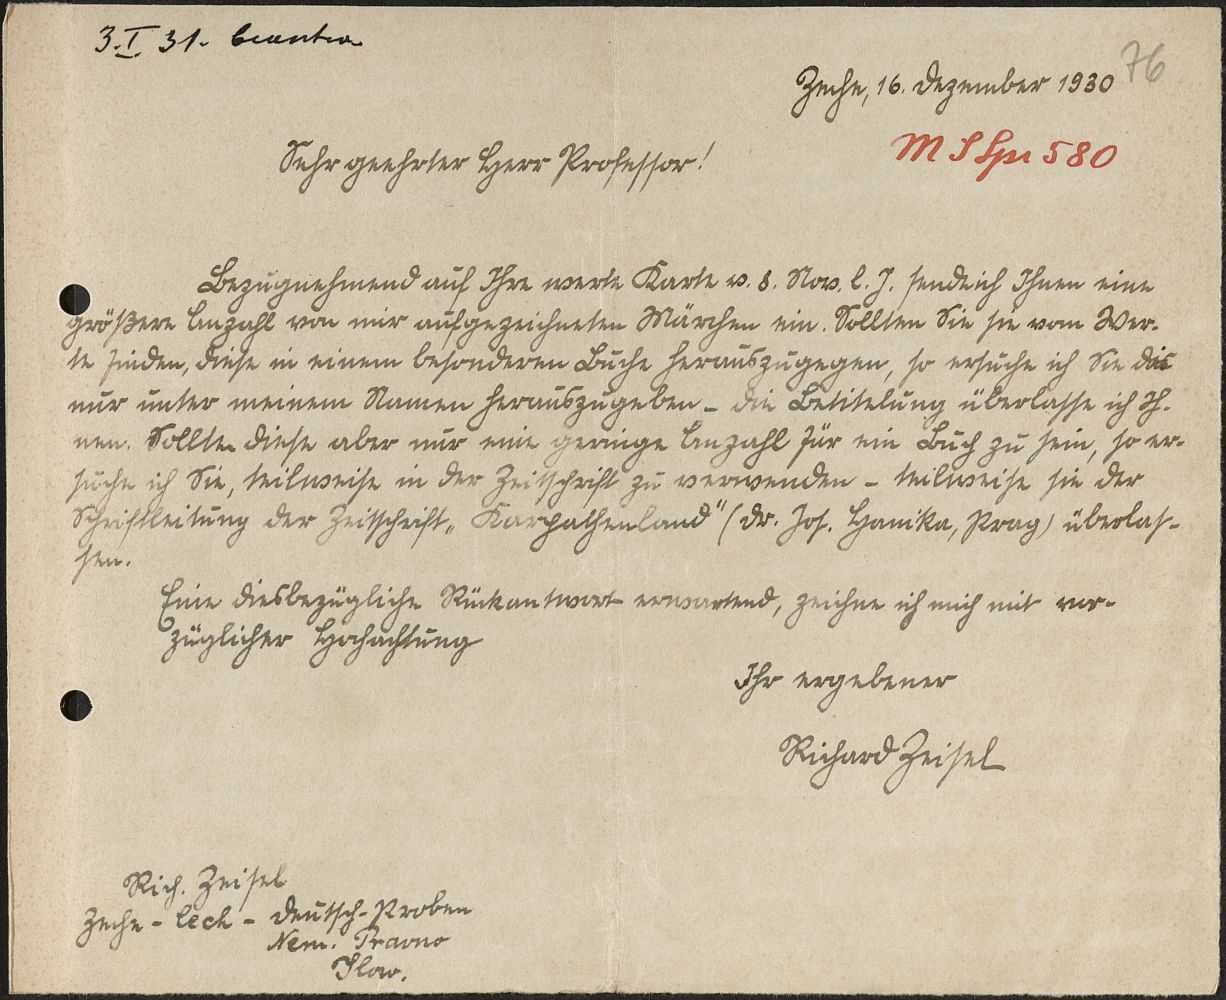 3.I.31. beantw.
76
Zeche, 16. Dezember 1930
M S Spr 580
Sehr geehrter Herr Professor!
Bezugnehmend auf Ihre werte Karte v. 8. Nov. l. J. sende ich Ihnen eine
größere Anzahl von mir aufgezeichneten Märchen ein. Sollten Sie sie vom Wer-
te finden, diese in einem besonderen Buche herauszugegen, so ersuche ich Sie das
nur unter meinem Namen herauszugeben – die Betitelung überlasse ich Ih-
nen. Sollten diese aber nur eine geringe Anzahl für ein Buch zu sein, so er-
suche ich Sie, teilweise in der Zeitschrift zu verwenden – teilweise sie der
Schriftleitung der Zeitschrift „Karpathenland" (Dr. Jos. Hanika, Prag) überlas-
sen.
Eine diesbezügliche Rückantwort erwartend, zeichne ich mich mit vor-
züglicher Hochachtung
Ihr ergebener
Richard Zeisel
Rich. Zeisel
Zeche – Cech – Deutsch-Proben
Nem. Pravno
Slov.